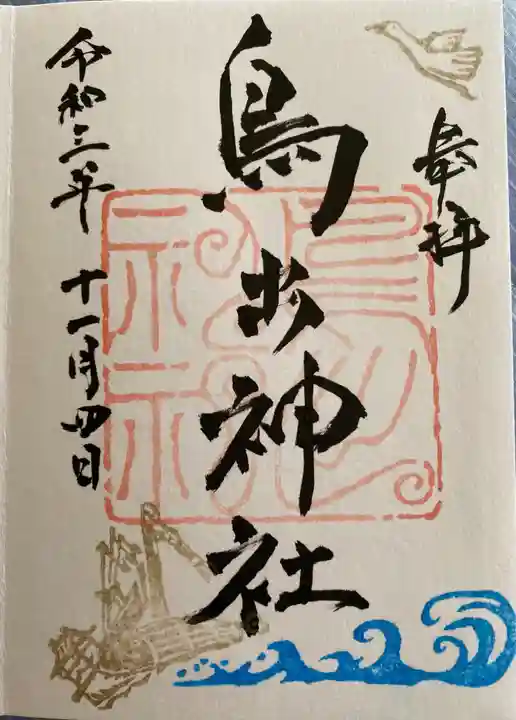 奉拝
鳥出神社
令和三年 十一月四日